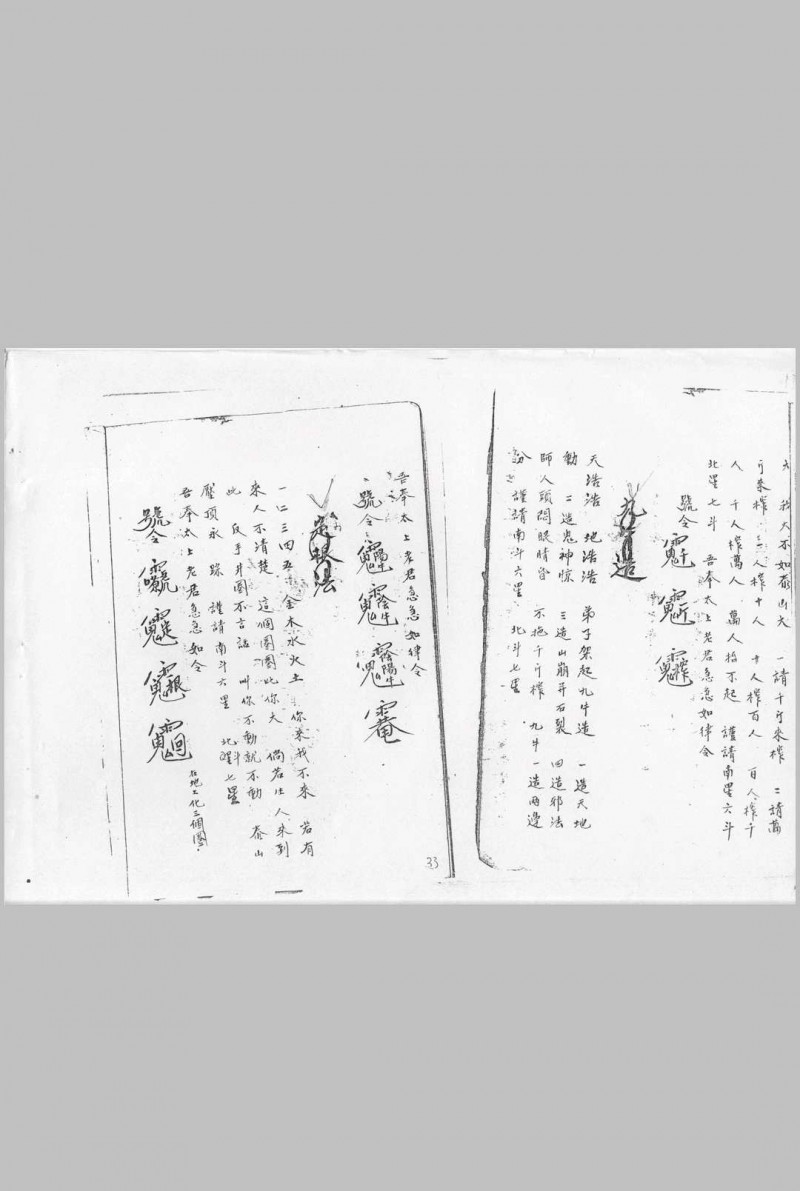 大 我大不如泰山大 一請千斤來榨 二請萬
斤來榨 三人榨十人 十人榨百人 百人榨千
人 千人榨萬人 萬人抬不起 謹請南星六斗
北星七斗 吾奉太上老君急急如律令
號令
九牛造
天浩浩 地浩浩 弟子架起九牛造 一造天地
動 二造鬼神惊 三造山崩并石裂 四造邪法
師人頭悶眼睛昏 不拖千斤榨 九牛一造兩邊
分 謹請南斗六星 北斗七星
吾奉太上老君急急如律令
號令
定根法
一二三四五 金木水火土 你來我不來 若有
來人不清楚 這個圈圈比你大 倘若仕人來到
此 反手井圈不言話 叫你不動就不動 泰山
壓頂永跺 謹請南斗六星 北斗七星
吾奉太上老君急急如令
號令
在地上化三個圈.
33